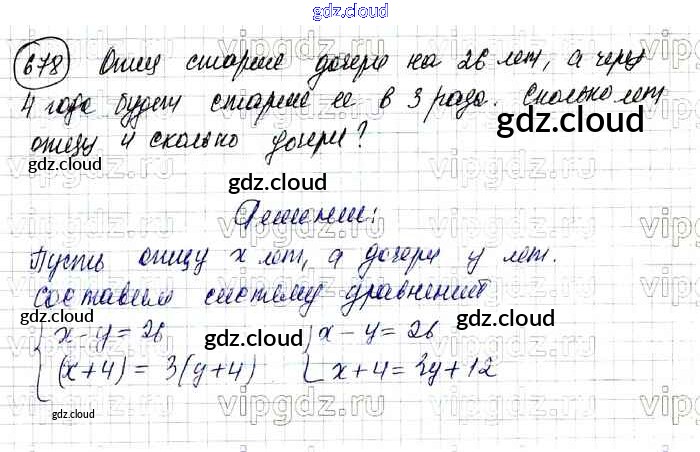 gdz.cloud
678 Отец старше дочери на 26 лет, а через
4 года будет старше ее в 3 раза. Сколько лет
отцу и сколько дочери?
gdz.cloud
gdz.cloud
gdz.cloud
Решение:
Пусть отцу x лет, а дочери y лет.
Составим систему уравнений
{ x - y = 26 { x - y = 26
(x+4) = 3(y+4) x+4 = 3y+12
gdz.cloud
gdz.cloud
gdz.cloud
vipgdz.ru